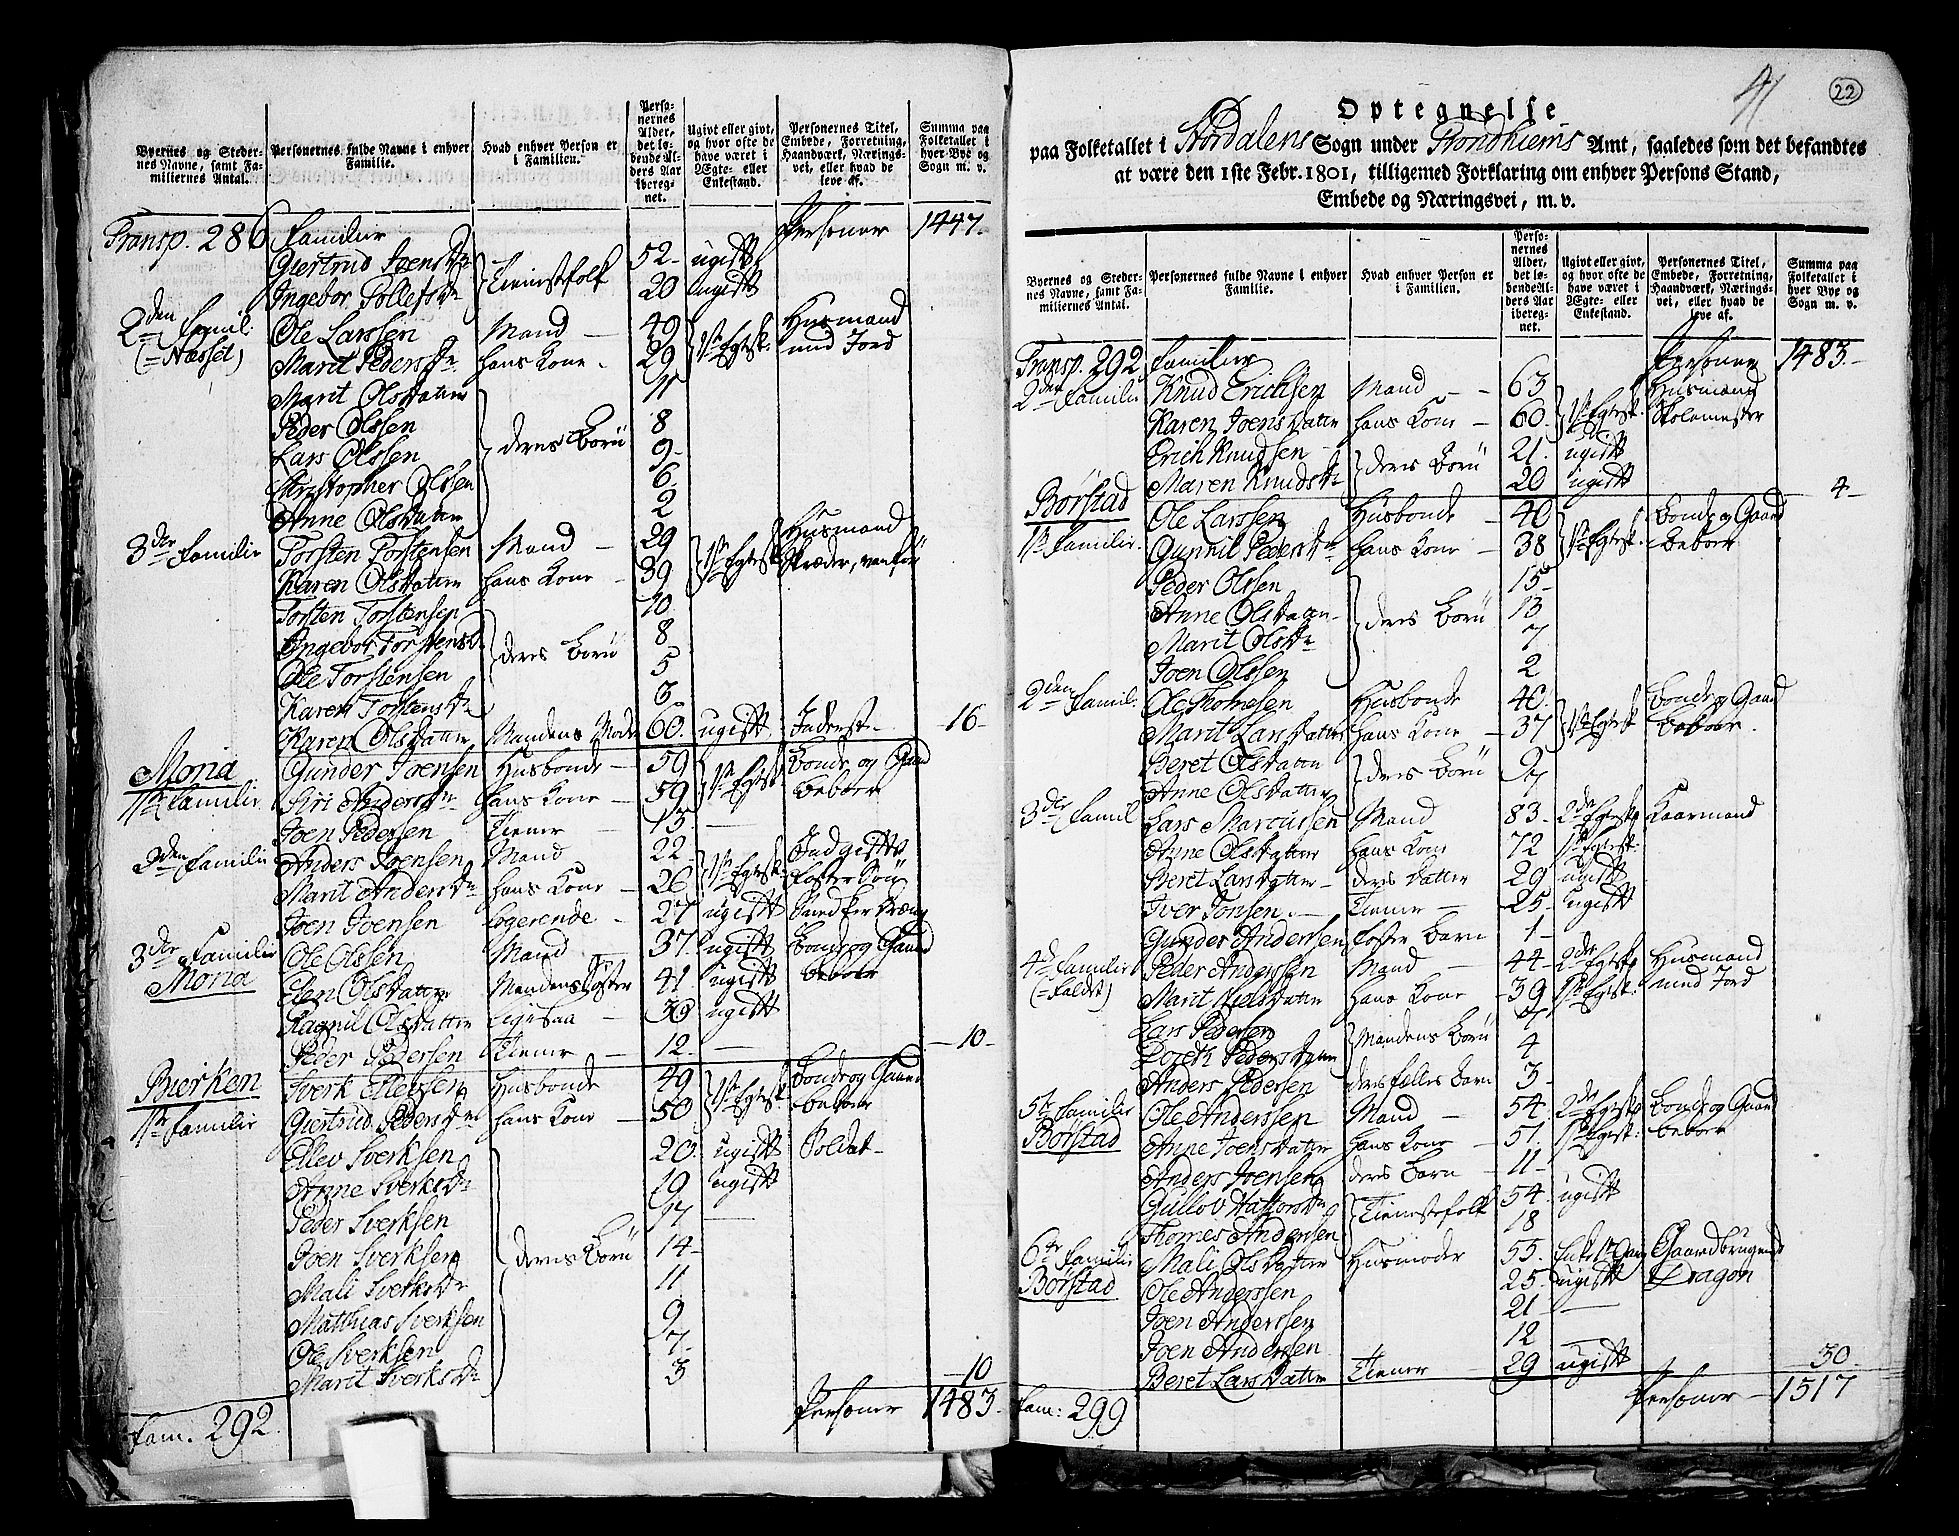 Byernes og Steder-
nes Navne, samt Fa-
miliernes Antal.
Personernes fulde Navne i enhver
Familie.
Hvad enhver Person er
i Familien.
Perso-
nernes
Alder,
det lø-
bende Al-
ders Aar
ibereg-
net.
Ugivt eller givt,
og hvor ofte de
have været i
Ægte- eller
Enkestand.
Personernes Titel,
Embede, Forretning,
Haandværk, Nærings-
vei, eller hvad de
leve af.
Summa paa
Folketallet i
hver Bye og
Sogn m. v.
Transp. 286 Familier Personer 1447.
Giertrud Joensdr Tienestefolk 52 ugift
Ingebor Tollefsdr 20 ugift
2den Famil: Ole Larssen Mand 49 1ste Egtesk. Husmand
(=Hæsset) Marit Pedersdr hans Kone 29 med Jord
Marit Olsdatter 11
Peder Olssen deres Børn 8
Lars Olssen 9
Christopher Olssen 6
Anne Olsdatter 2
3die Familie Torsten Torstensen Mand 29 1ste Egtesk Husmand
Karen Olsdatter hans Kone 39 Skræder, vanfør
Torsten Torstensen 10
Ingebor Torstensd. deres Børn 8
Ole Torstensen 5
Karen Torstensdr 3
Karen Olsdatter Mandens Moder 60 ugift Inderst 16
Moria Gunder Joensen Husbonde 59 1ste Egtesk Bonde og Gaard
1ste Familie Siri Andersdr hans Kone 59 beboer
Joen Pedersen Tiener 15
2den Familie Anders Joensen Mand 22 1ste Egtesk. Indgifte
Marit Andersdr hans Kone 26 Foster Søn
Joen Joensen Logerende 27 ugift
3die Familie Ole Olssen Mand 37 ugift Bonde og Gaard
Moria Elen Olsdatter Mandens Søster 41 ugift beboer
Ragnil Olsdatter Ligesaa 30 ugift
Peder Pedersen Tiener 12 10
Bierken Sverk Ellevsen Husbonde 49 1ste Egtesk. Bonde og Gaard
1ste Familie Giertrud Pedersdr hans Kone 50 beboer
Ellev Sverksen 20 ugift Soldat
Anne Sverksdr 19 ugift
Peder Sverksen 17
Joen Sverksen deres Børn 14
Mali Sverksdr 11
Matthias Sverksen 9
Ole Sverksen 7
Marit Sverksdr 3 10
Fam. 292. Personer 1483.
41
22
Optegnelse
paa Folketallet i Stördalens Sogn under Trondhiems Amt, saaledes som det befandtes
at være den 1ste Febr. 1801, tilligemed Forklaring om enhver Persons Stand,
Embede og Næringsvei, m. v.
Byernes og Steder-
nes Navne, samt Fa-
miliernes Antal.
Personernes fulde Navne i enhver
Familie.
Hvad enhver Person er
i Familien.
Perso-
nernes
Alder,
det lø-
bende Al-
ders Aar
ibereg-
net.
Ugivt eller givt,
og hvor ofte de
have været i
Ægte- eller
Enkestand.
Personernes Titel,
Embede, Forretning,
Haandværk, Nærings-
vei, eller hvad de
leve af.
Summa paa
Folketallet i
hver Bye og
Sogn m. v.
Transp. 292 Familier Personer 1483.
2den Familie Knud Erichsen Mand 63 1ste Egtesk. Husmand
Karen Joensdatter hans Kone 60 Skolemester
Erich Knudsen deres Børn 21 ugift
Maren Knudsdr 20 ugift 4
Börstad Ole Larssen Husbonde 40 1ste Egtesk. Bonde og Gaard
1ste Familie Gunnil Pedersdr hans Kone 38 beboer
Peder Olssen 15
Anne Olsdatter deres Børn 13
Marit Olsdr 7
Joen Olssen 2
2den Famil: Ole Thomesen Husbonde 40 1ste Egtesk Bonde og Gaard
Marit Larsdatter hans Kone 37 beboer.
Beret Olsdatter deres Børn 9
Anne Olsdatter 7
3die Famil Lars Marcussen Mand 83 2de Egtesk Kaarmand
Anne Olsdatter hans Kone 72 1ste Egtesk:
Beret Larsdatter deres Datter 29 ugift
Iver Tonsen Tiener 25 ugift
Gunder Andersen Foster Barn 1
4de Familie Peder Anderssen Mand 44 2de Egtesk Husmand
(=Faldet) Marit Nielsdatter hans Kone 39 1ste Egtesk: med Jord
Lars Pedersen Mandens Børn
Doreth Pedersdatter 4
Anders Pedersen deres fælles Barn 3
5te Familie Ole Anderssen Mand 54 2de Egtesk Bonde og Gaard
Börstad Anne Joensdatter hans Kone 51 1ste Egtesk: beboer
Anders Joensen deres Barn 11
Gullov Hafforsdr Tienestefolk 54 ugift
Thomes Andersen 18
6te Familie Mali Olsdatter Husmoder 55 Enke 1ste Gang Gaardbrugende
Börstad Ole Anderssen 25 ugift Dragon
Joen Anderssen 21
Joen Andersen 12
Beret Larsdatter Tiener 29 ugift 30
Fam: 299 Personer 1517